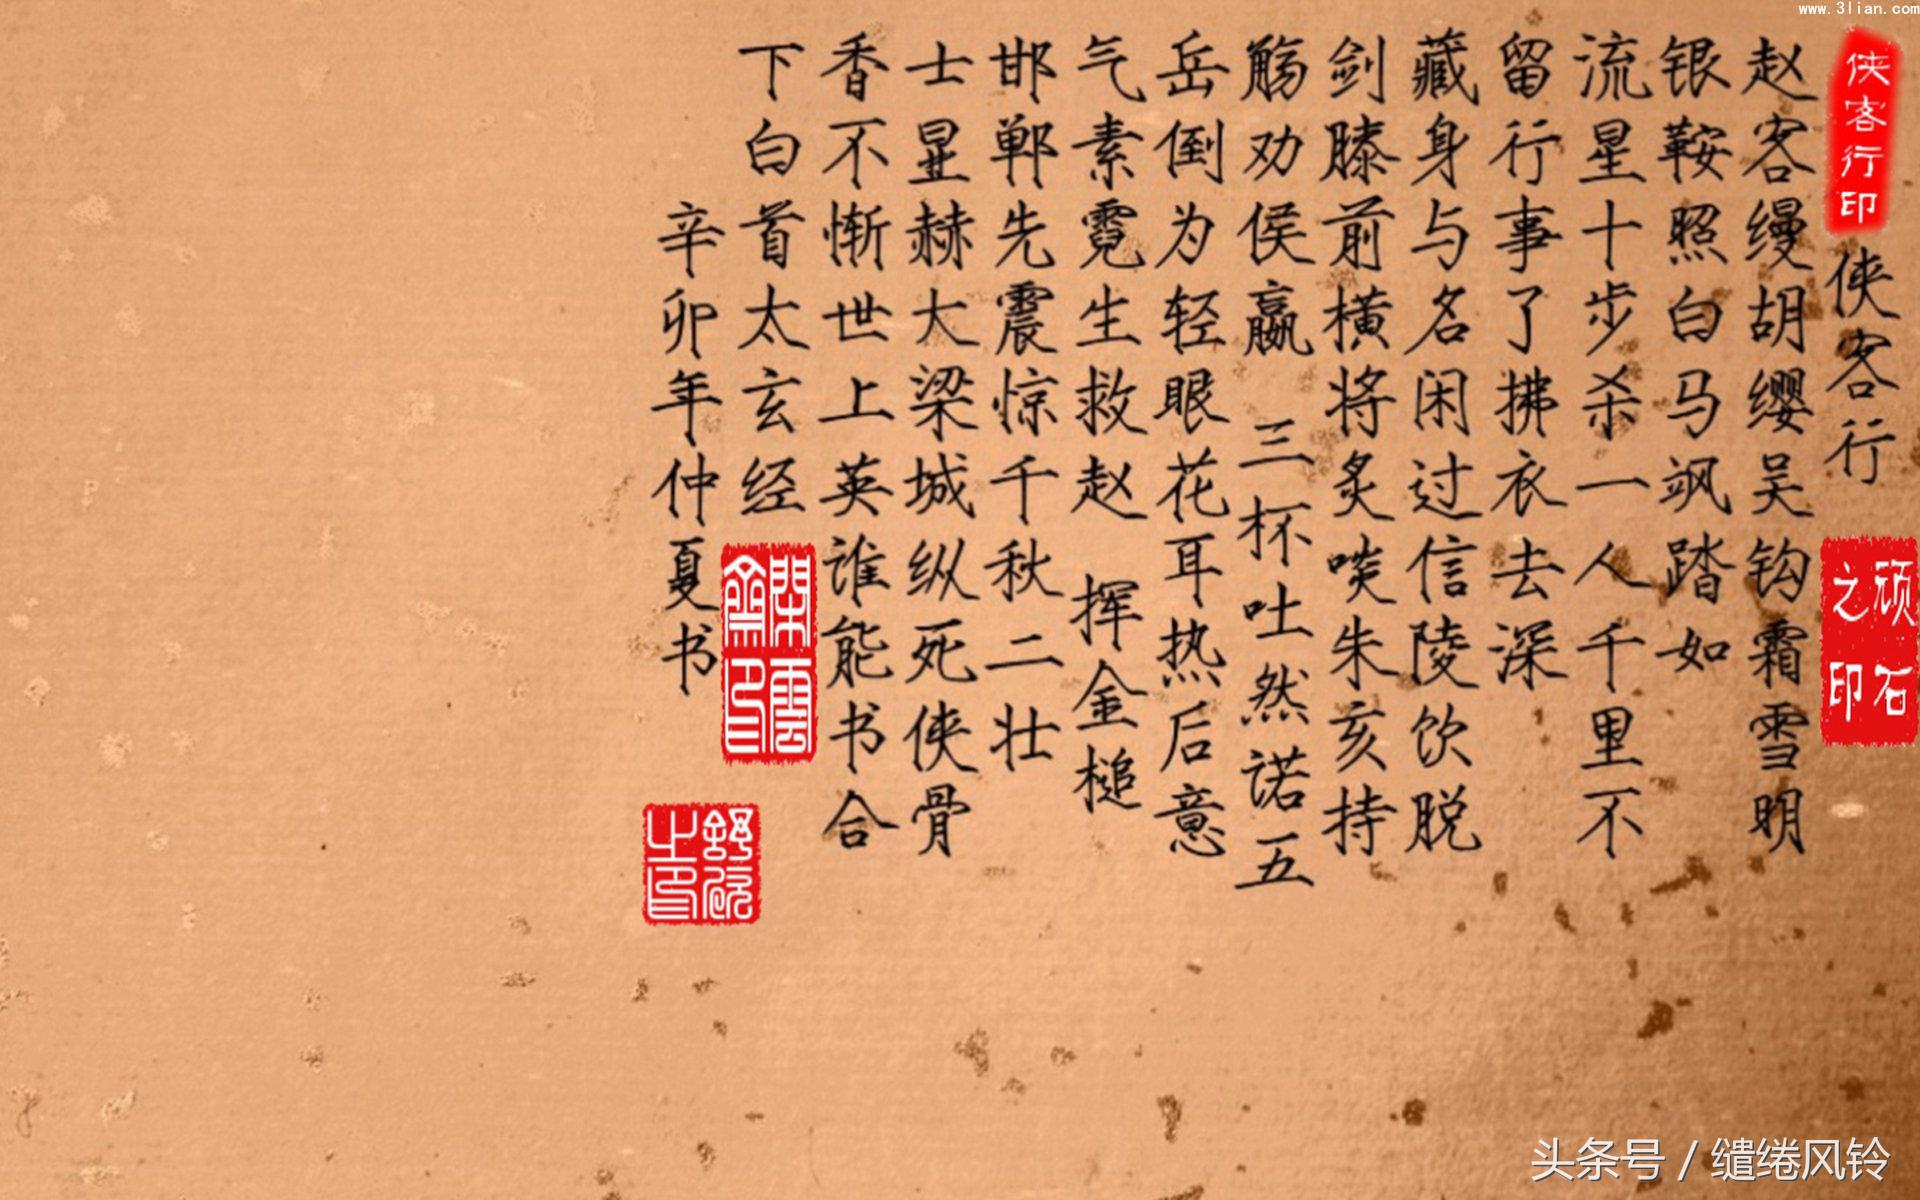 www.3lian.com
侠客行印
侠客行
顽石之印
赵客缦胡缨吴钩霜雪明
银鞍照白马飒踏如
流星十步杀一人千里不
留行事了拂衣去深
藏身与名闲过信陵饮脱
剑膝前横将炙啖朱亥持
觞劝侯嬴 三杯吐然诺五
岳倒为轻眼花耳热后意
气素霓生救赵 挥金槌
邯郸先震惊千秋二壮
士显赫大梁城纵死侠骨
香不惭世上英谁能书合
下白首太玄经
閑雲齋印
辛卯年仲夏书
头条号 / 缱绻风铃